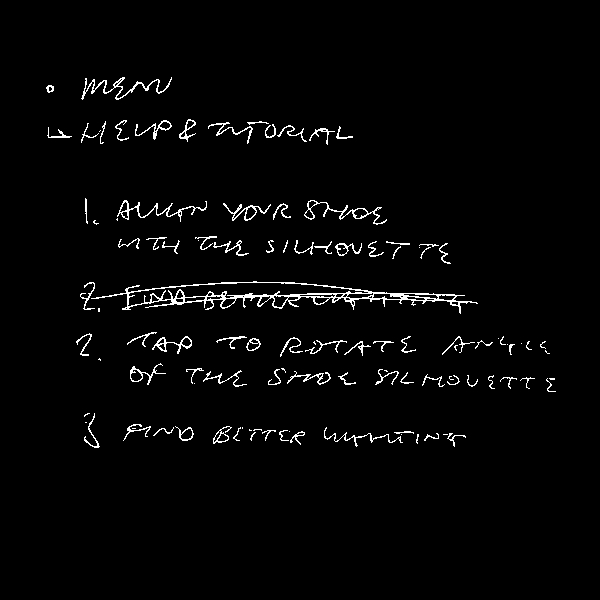 • MENU
↳ HELP & TUTORIAL
1. ALIGN YOUR SHOE
WITH THE SILHOUETTE
2. FIND BETTER LIGHTING
2. TAP TO ROTATE ANGLE
OF THE SHOE SILHOUETTE
3 FIND BETTER LIGHTING